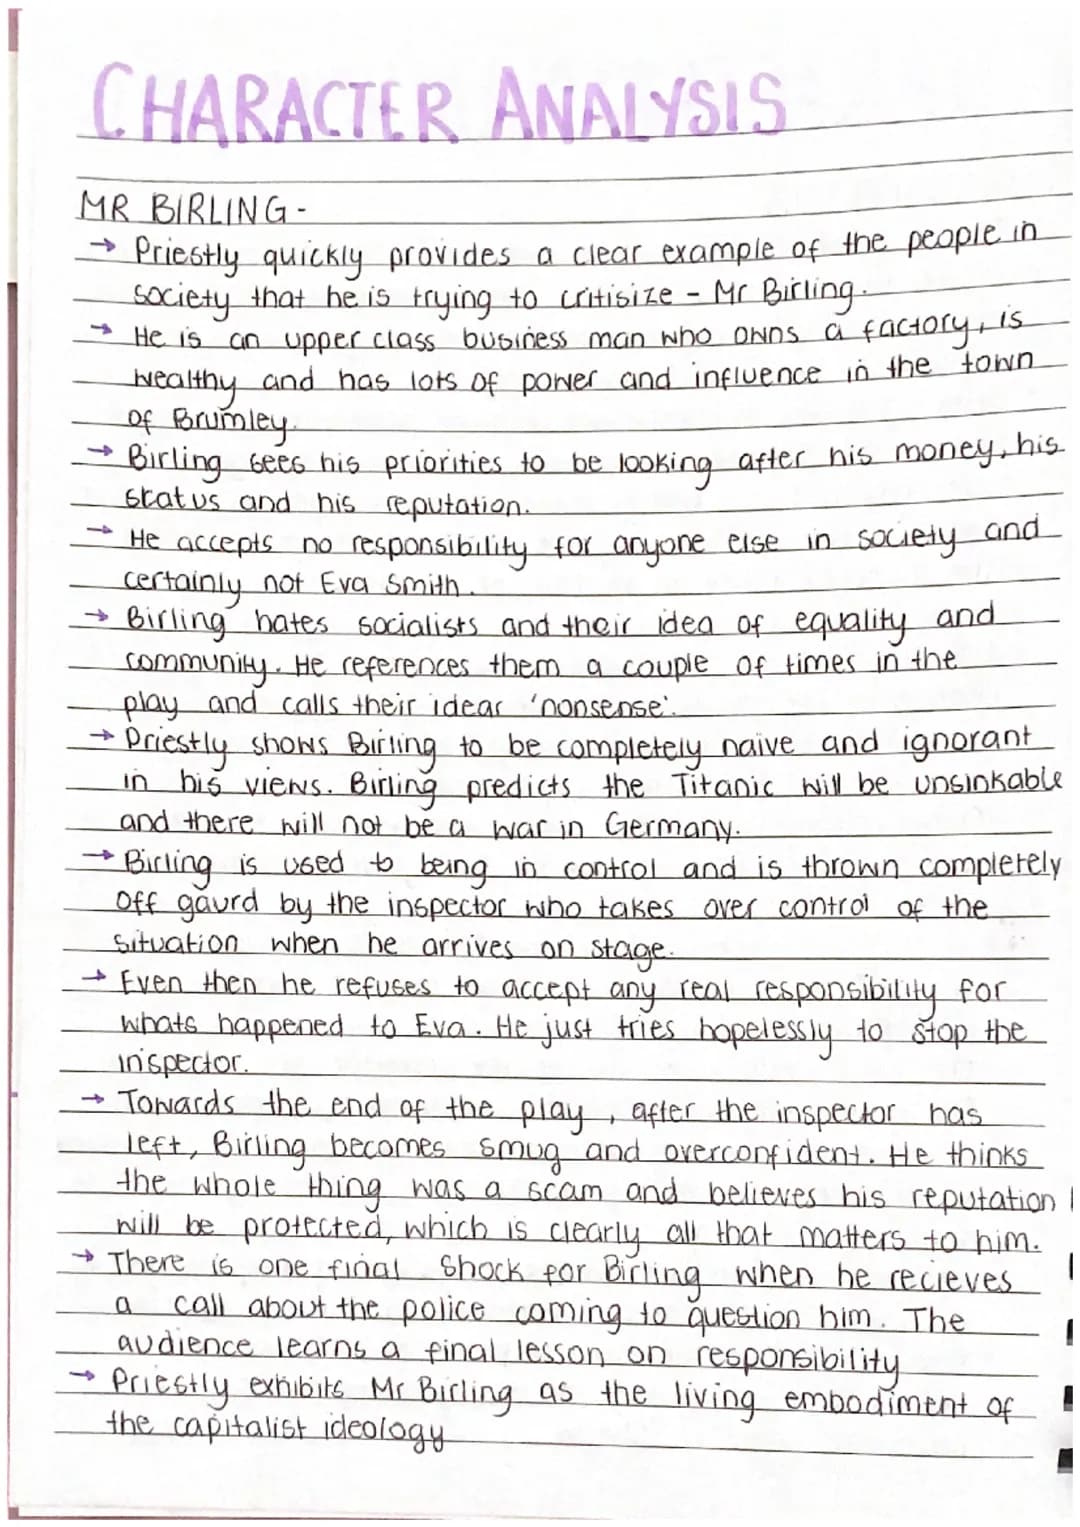 CHARACTER ANALYSIS
MR BIRLING -
→ Priestly quickly provides a clear example of the people in
society that he is trying to critisize - Mr Birling.
→ He is an upper class business man who owns a factory, is
wealthy and has lots of power and influence in the town
of Brumley.
→ Birling sees his priorities to be looking after his money, his
status and his reputation.
→ He accepts no responsibility for anyone else in society and
certainly not Eva Smith.
→ Birling hates socialists and their idea of equality and
community. He references them a couple of times in the
play and calls their ideas 'nonsense'.
→ Priestly shows Birling to be completely naive and ignorant
in his views. Birling predicts the Titanic will be unsinkable
and there will not be a war in Germany.
→ Birling is used to being in control and is thrown completely
off gaurd by the inspector who takes over control of the
situation when he arrives on stage.
→ Even then he refuses to accept any real responsibility for
whats happened to Eva. He just tries hopelessly to stop the
inspector.
→ Towards the end of the play, after the inspector has
left, Birling becomes smug and overconfident. He thinks
the whole thing was a scam and believes his reputation
will be protected, which is clearly all that matters to him.
→ There is one final shock for Birling when he recieves
a call about the police coming to question him. The
audience learns a final lesson on responsibility
→ Priestly exhibits Mr Birling as the living embodiment of
the capitalist ideology